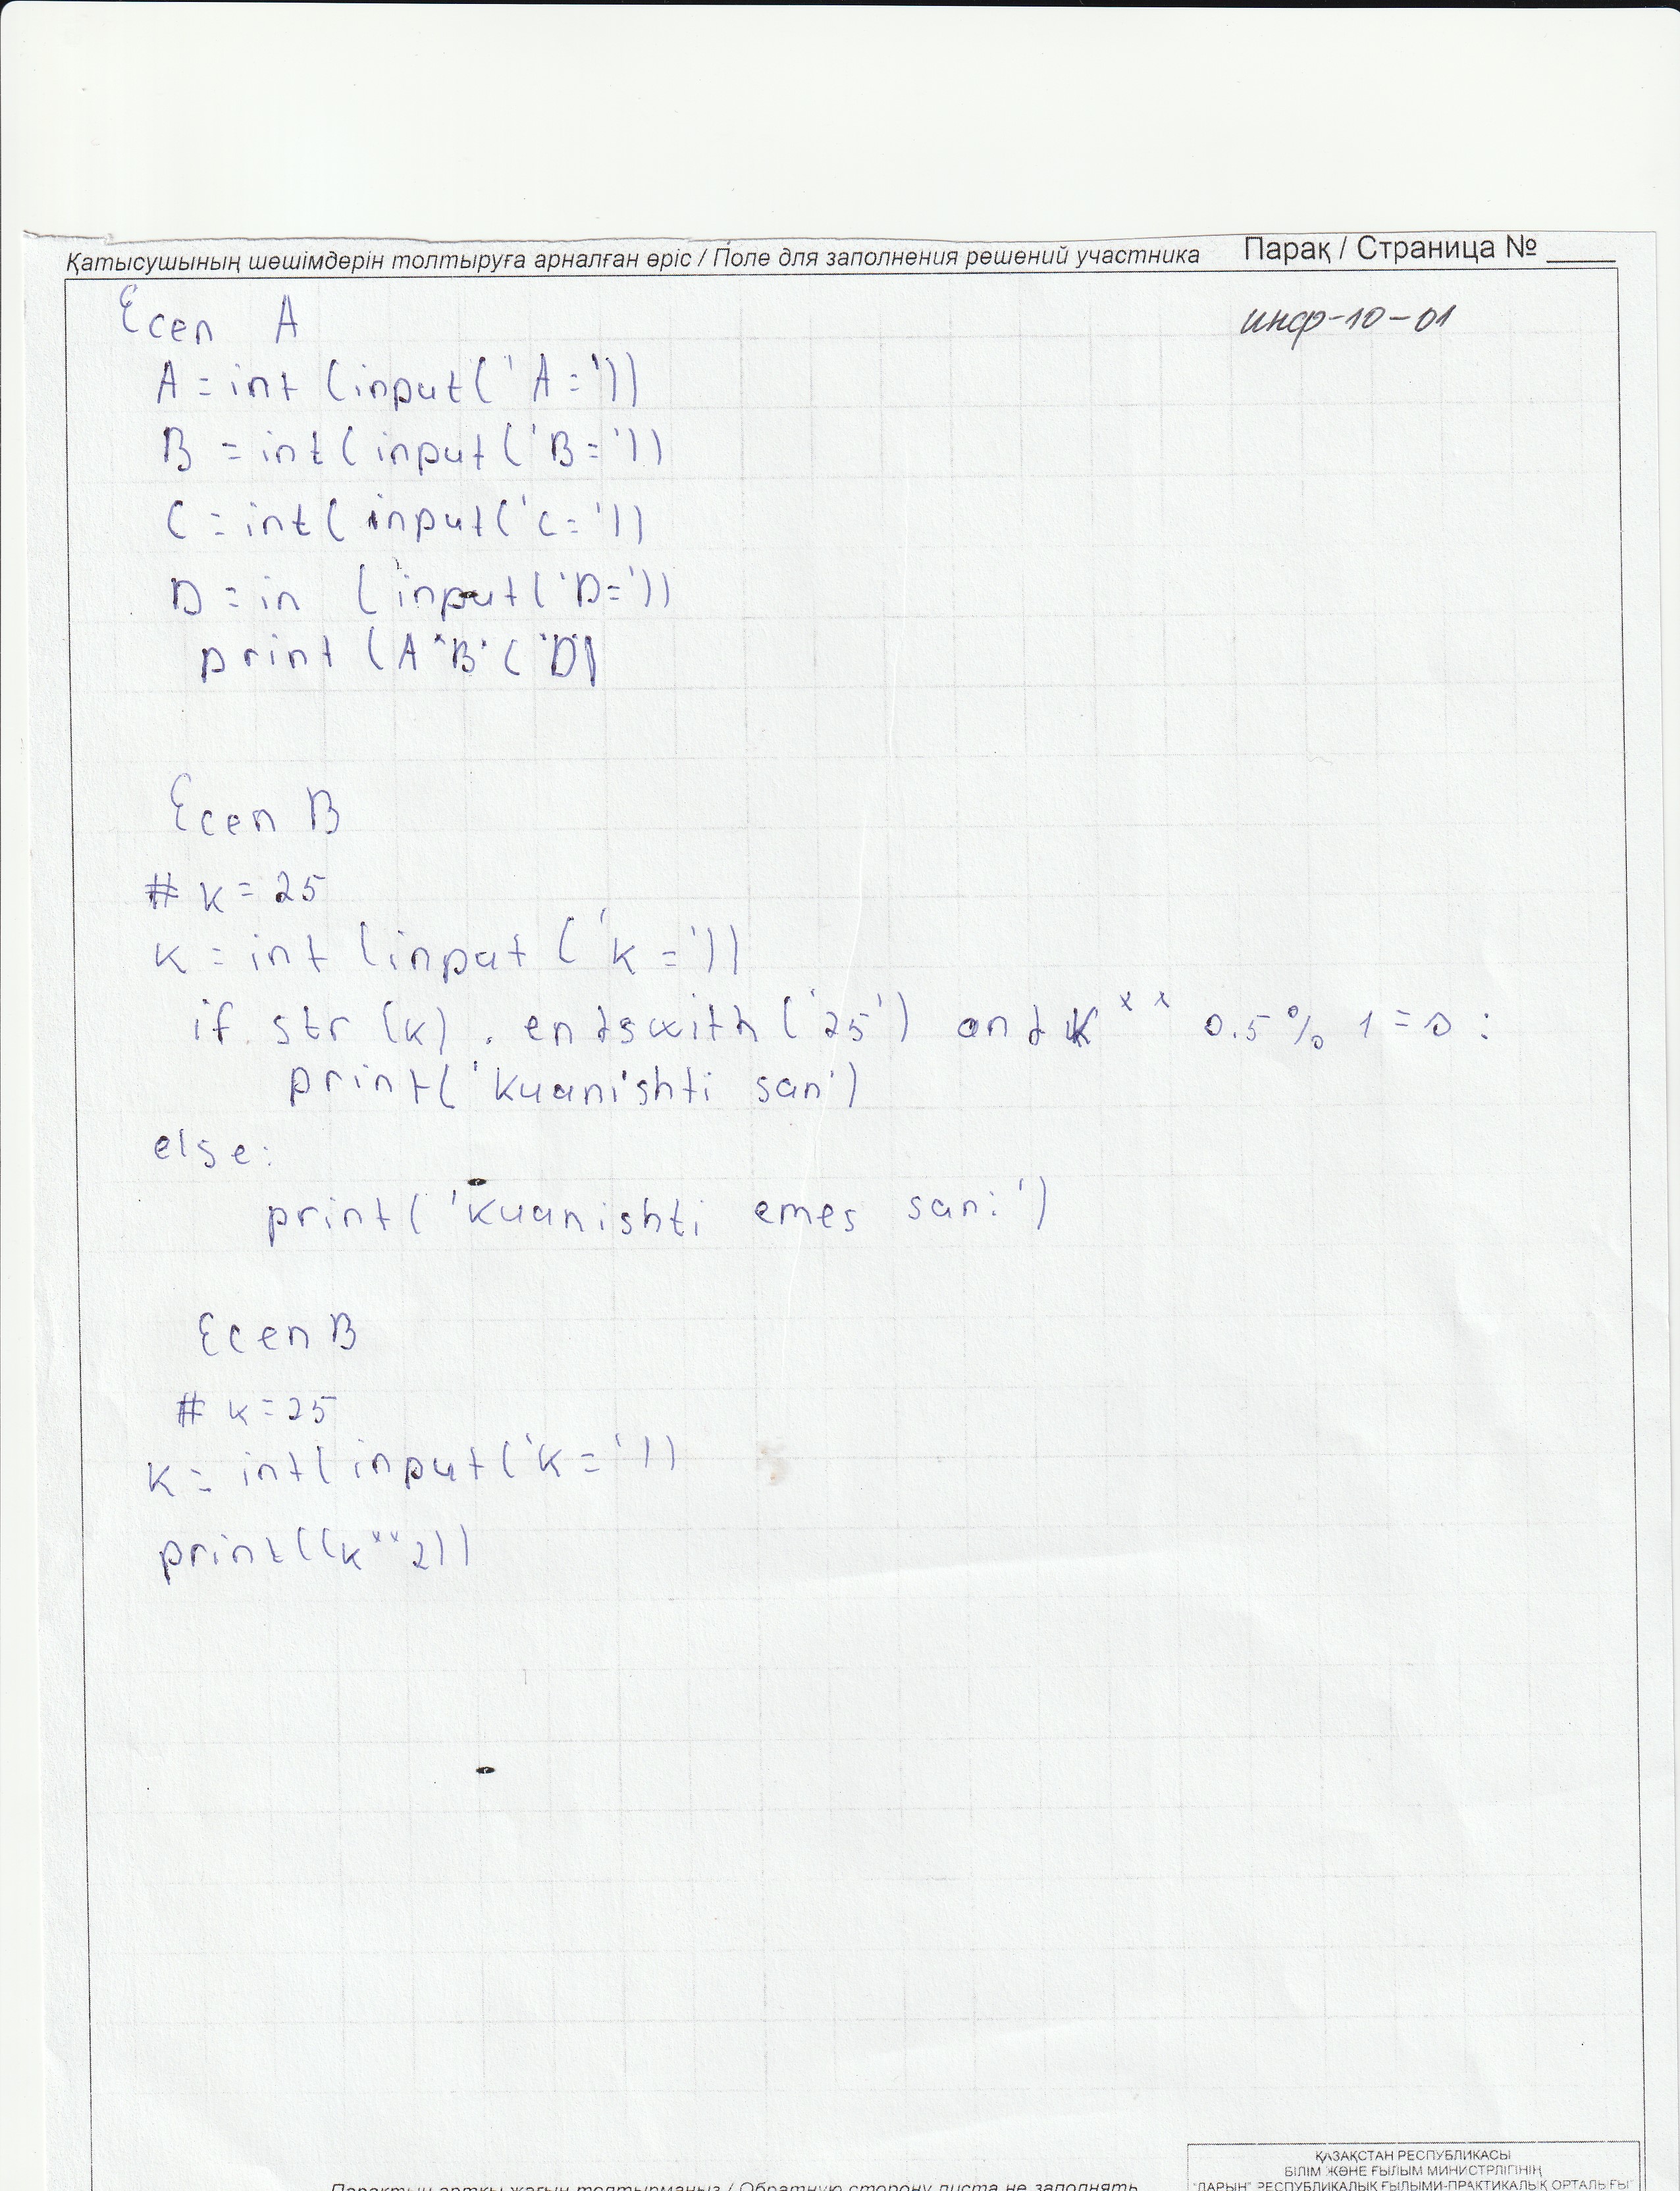 Қатысушының шешімдерін толтыруға арналған өріс / Поле для заполнения решений участника Парақ / Страница № ____
Есеп А
инф-10-01
A = int (input('A='))
B = int(input('B='))
C = int(input('C='))
D = in (input('D='))
print (A*B*C*D)
Есеп B
# k = 25
k = int (input ('k ='))
if str (k) . endswith ('25') and k ** 0.5 % 1 = 0 :
print('kuanishti san')
else:
print('kuanishti emes san:')
Есеп B
# k = 25
k = int(input('k='))
print((k**2))
Парақтың артқы жағын толтырмаңыз / Обратную сторону листа не заполнять
ҚАЗАҚСТАН РЕСПУБЛИКАСЫ
БІЛІМ ЖӘНЕ ҒЫЛЫМ МИНИСТРЛІГІНІҢ
"ДАРЫН" РЕСПУБЛИКАЛЫҚ ҒЫЛЫМИ-ПРАКТИКАЛЫҚ ОРТАЛЫҒЫ"